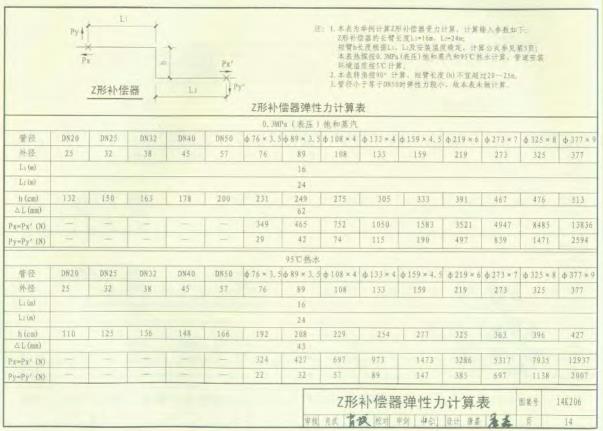 L₁
Py
Px
h
Px'
L₂
Py'
Z形补偿器
注: 1.本表为举例计算Z形补偿器受力计算, 计算输入参数如下:
Z形补偿器的长臂长度L₁=16m, L₂=24m;
短臂h长度根据L₁、L₂及安装温度确定, 计算公式参见第5页;
本表热媒按0.3MPa(表压)饱和蒸汽和95℃热水计算, 管道安装
环境温度按5℃计算.
2.本表转角按90°计算, 短臂长度(h)不宜超过20~25m.
3.管径小于等于DN50时弹性力较小, 故本表未做计算.
Z形补偿器弹性力计算表
0.3MPa(表压)饱和蒸汽
管径 DN20 DN25 DN32 DN40 DN50 φ76×3.5 φ89×3.5 φ108×4 φ133×4 φ159×4.5 φ219×6 φ273×7 φ325×8 φ377×9
外径 25 32 38 45 57 76 89 108 133 159 219 273 325 377
L₁(m) 16
L₂(m) 24
h(cm) 132 150 163 178 200 231 249 275 305 333 391 467 476 513
△L(mm) 62
Px=Px'(N) — — — — — 349 465 752 1050 1583 3521 4947 8485 13836
Py=Py'(N) — — — — — 29 42 74 115 190 497 839 1471 2594
95℃热水
管径 DN20 DN25 DN32 DN40 DN50 φ76×3.5 φ89×3.5 φ108×4 φ133×4 φ159×4.5 φ219×6 φ273×7 φ325×8 φ377×9
外径 25 32 38 45 57 76 89 108 133 159 219 273 325 377
L₁(m) 16
L₂(m) 24
h(cm) 110 125 136 148 166 192 208 229 254 277 325 363 396 427
△L(mm) 43
Px=Px'(N) — — — — — 324 427 697 973 1473 3286 5317 7935 12937
Py=Py'(N) — — — — — 22 32 57 87 147 385 697 1138 2007
Z形补偿器弹性力计算表 图集号 14K206
审核 校对 设计 页 14